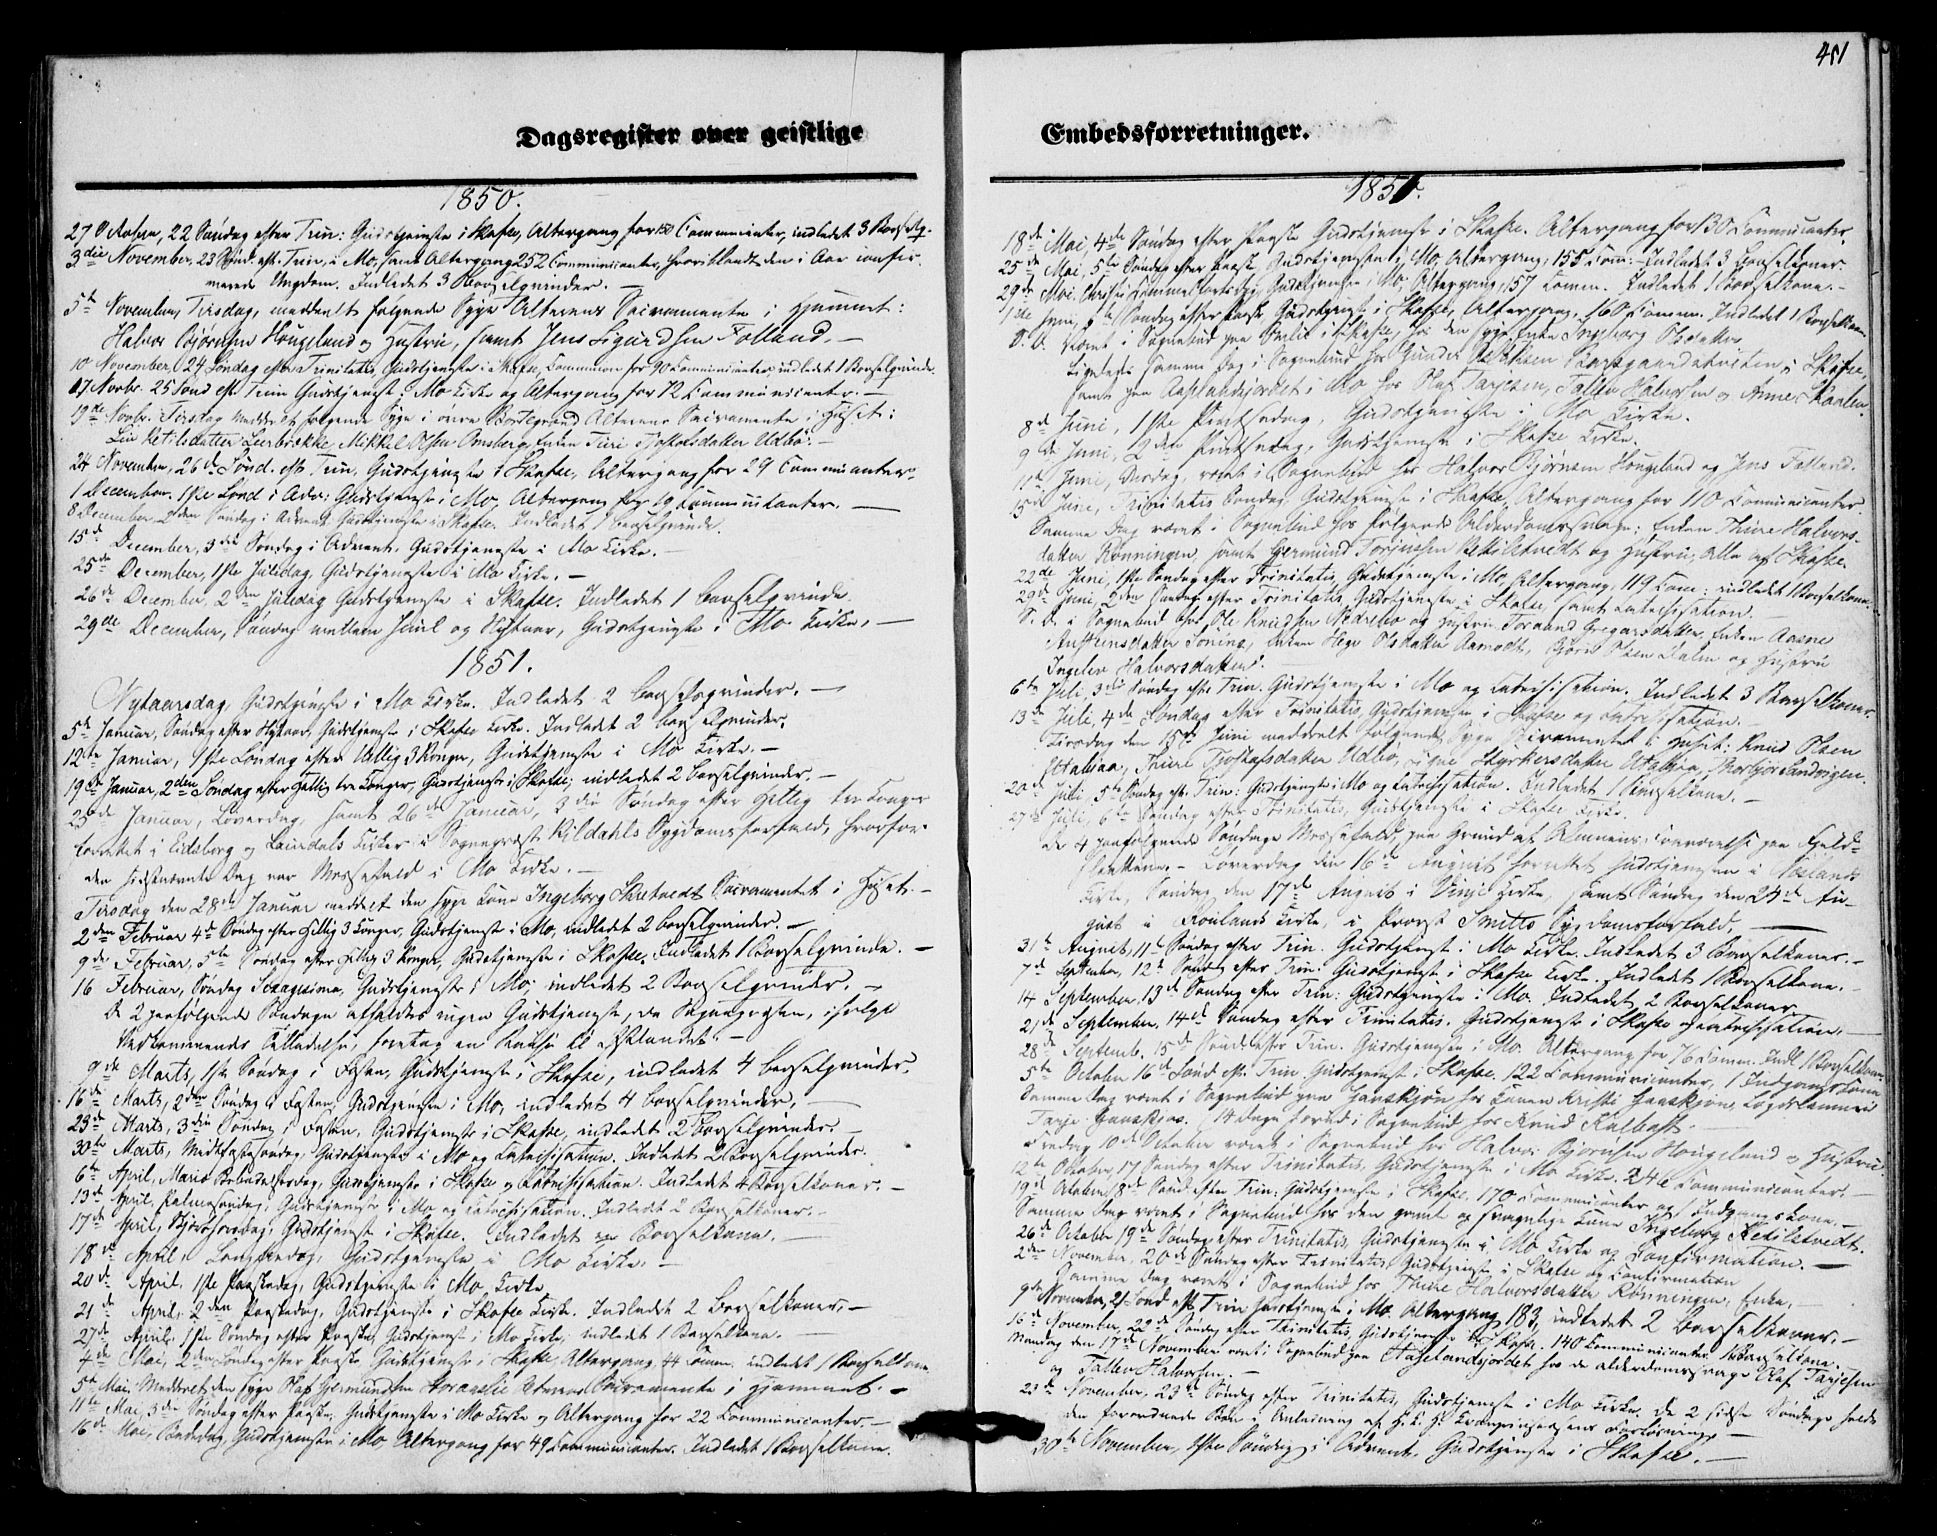 Dagsregister over geistlige
1850.
27 October, 22 Søndag efter Trin: Gudstjeneste i Skafse, Altergang for 150 Communicanter, indledet 3 Barselq.
3die November, 23 Sønd. eft. Trin, i Mo, samt Altergang 252 Communicanter, hvoriblandt den i Aar confir-
merede Ungdom. Indledet 3 Barselqvinder. —
5te November, Tirsdag, meddeelt følgende Syge Alterens Sacramente i Hjemmet:
Halvor Bjørnsen Hougeland og Hustru, samt Jens Sigurdsen Folland. —
10 November, 24 Søndag efter Trinitatis, Gudstjeneste i Skafse, Communion for 90 Communicanter, indledet 1 Barselqvinde.
17 Novbr. 25 Sønd eft. Trin Gudstjeneste i Mo Kirke og Altergang for 72 Communicanter. —
19de Novbr. Tirsdag meddeelt følgende Syge i øvre Bortegrend Alterens Sacramente i Huset:
Liv Ketilsdatter Mikkel Olsen Enken Turi Udbø. —
24 November, 26de Sønd. eft. Trin, Gudstjeneste i Skafse, Altergang for 29 Communicanter.
1 December. 1ste Sønd i Adv: Gudstjeneste i Mo, Altergang for 19 Communicanter. —
8 December 2den Søndag i Advent Gudstjeneste i Skafse. Indledet 1 Barselqvinde.
15de December, 3die Søndag i Advent, Gudstjeneste i Mo Kirke. —
25de December, 1ste Juledag, Gudstjeneste i Mo Kirke. —
26de December, 2den Juledag Gudstjeneste i Skafse. Indledet 1 Barselqvinde.
29de December, Søndag mellem Juul og Nytaar, Gudstjeneste i Mo Kirke. —
1851.
Nytaarsdag, Gudstjeneste i Mo Kirke. Indledet 2 Barselqvinder. —
5te Januar, Søndag efter Nytaar, Gudstjeneste i Skafse Kirke. Indledet 2 Barselqvinder.
12te Januar, 1ste Søndag efter Hellig 3 Konger, Gudstjeneste i Mo Kirke. —
19de Januar, 2den Søndag efter Hellig tre Konger, Gudstjeneste i Skafse; indledet 2 Barselqvinder. —
25de Januar, Løverdag, samt 26de Januar, 3die Søndag efter Hellig tre Konger
forrettet i Eidsborg og Laurdals Kirker i Sogneprest Kildahls Sygdomsforfald, hvorfor
den sidstnævnte Dag var Messefald i Mo Kirke. —
Tirsdag den 28de Januar meddelt den syge Kone Ingeborg Skretvedt Sacramentet i Huset. —
2den Februar 4de Søndag efter Hellig 3 Konger, Gudstjeneste i Mo, indledet 2 Barselqvinder. —
9de Februar, 5te Søndag efter Hellig 3 Konger, Gudstjeneste i Skafse, Indledet 1 Barselqvinde. —
16 Februar, Søndag Sexagesima, Gudstjeneste i Mo; indledet 2 Barselqvinder. —
De 2 paafølgende Søndage afholdtes ingen Gudstjeneste, da Sognepresten, ifølge
Vedkommendes Tilladelse, foretog en Reise til Østlandet. —
9de Marts, 1ste Søndag i Fasten, Gudstjeneste i Skafse, indledet 4 Barselqvinder.
16de Marts, 2den Søndag i Fasten, Gudstjeneste i Mo, indledet 4 Barselqvinder. —
23de Marts, 3die Søndag i Fasten, Gudstjeneste i Skafse, indledet 2 Barselqvinder. —
30te Marts, Midfastesøndag, Gudstjeneste i Mo og Catechisation. Indledet 2 Barselqvinder.
6te April, Mariæ Bebudelsesdag, Gudstjeneste i Skafse og Catechisation. Indledet 4 Barselkoner. —
13de April, Palmesøndag, Gudstjeneste i Mo og Catechisation. Indledet 2 Barselkoner. —
17de April, Skjærthorsdag, Gudstjeneste i Skafse. Indledet en Barselkone. —
18de April, Langfredag, Gudstjeneste i Mo Kirke. —
20de April, 1ste Paaskedag, Gudstjeneste i Mo Kirke
21de April, 2den Paaskedag, Gudstjeneste i Skafse Kirke. Indledet 2 Barselkoner. —
27de April, 1ste Søndag efter Paaske, Gudstjeneste i Mo Kirke, indledet 1 Barselkone. —
4de Mai, 2den Søndag efter Paaske, Gudstjeneste i Skafse, Altergang, 44 Comm. indledet 1 Barselkone
5te Mai, Meddeelt den syge Olaf Gjermundsen Alterens Sacramente i Hjemmet. —
11te Mai, 3die Søndag efter Paaske, Gudstjeneste i Mo Kirke og Altergang for 22 Communicanter. —
16de Mai, Bededag, Gudstjeneste i Mo Altergang for 49 Communicanter. Indledet 1 Barselkone.
451
Embedsforretninger.
1851.
18de Mai, 4de Søndag efter Paaske Gudstjeneste i Skafse. Altergang for 130 Communicanter.
25de Mai, 5te Søndag efter Paaske, Gudstjeneste i Mo, Altergang, 155 Com: — Indledet 3 Barselkoner.
29de Mai. Christi Himmelfartsdag, Gudstjeneste i Mo, Altergang, 157 Comm. Indledet 1 Barselkone. —
1ste Juni, 6te Søndag efter Paaske Gudstjeneste i Skafse, Altergang, 160 Comm. Indledet 1 Barselkone.
S. D. været i Sognebud paa i Skafse, hos den syge Enke Ingeborg Olsdatter
Ligeledes samme Dag i Sognebud hos Gunder i Skafse,
samt paa Aaslandsjordet i Mo hos Olaf Tarjesen, Tallev Halvorsen og Anne Skaalen
8de Juni, 1ste Pintsedag, Gudstjeneste i Mo Kirke.
9de Juni, 2den Pintsedag, Gudstjeneste i Skafse Kirke.
11te Juni, Onsdag, været i Sognebud hos Halvor Bjørnsen Hougeland og Jens Folland.
15de Juni, Trinitatis Søndag Gudstjeneste i Skafse, Altergang for 110 Communicanter
Samme Dag været i Sognebud hos følgende Alderdomssvage: Enken Thure Halvors-
datter Rønningen, samt Gjermund Torjusen Kettilstvedt og Hustru, alle af Skafse.
22de Juni, 1ste Søndag efter Trinitatis, Gudstjeneste i Mo, Altergang, 119 Com: indledet 1 Barselkone.
29de Juni, 2den Søndag efter Trinitatis, Gudstjeneste i Skafse, samt Catechisation.
S. D. i Sognebud hos Ole Knudsen Nedrebø og Hustru Toraand Gregarsdatter, Enken Aasne
Enken Hege Olsdatter Aamodt, Bjørn Olsen Dalen og Hustru
Ingelev Halvorsdatter. —
6te Juli, 3die Søndag efter Trin. Gudstjeneste i Mo og Catechisation. Indledet 3 Barselkoner.
13de Juli, 4de Søndag efter Trinitatis, Gudstjeneste i Skafse og Catechisation. —
Tirsdag den 15de Juni meddeelt følgende Syge Sacramentet i Huset: Knud Olsen
Attabøaa, Thure Udbø, Signe Styrkersdatter Attabøaa, Thorbjør Sandvigen
20de Juli, 5te Søndag eft. Trin: Gudstjeneste i Mo og Catechisation. Indledet 1 Barselkone. —
27de Juli, 6te Søndag efter Trinitatis, Gudstjeneste i Skafse Kirke.
De 4 paafølgende Søndage Messefald, paa Grund af Almuens Fraværelse paa Fjeld-
slaatterne. — Løverdag den 16de August forrettet Gudstjenesten i Nesland
Kirke, Søndag den 17de August i Vinje Kirke, samt Søndag den 24de Au-
gust i Roulands Kirke, i Provst Smitts Sygdomsforfald. —
31te August, 11te Søndag efter Trin. Gudstjeneste i Mo Kirke. Indledet 3 Barselkoner. —
7de September, 12te Søndag efter Trin: Gudstjeneste i Skafse Kirke. Indledet 1 Barselkone. —
14 September, 13de Søndag efter Trin: Gudstjeneste i Mo. Indledet 2 Barselkoner
21de September, 14de Søndag efter Trinitatis. Gudstjeneste i Skafse og Catechisation. —
28de Septemb. 15de Sønd. efter Trin. Gudstjeneste i Mo. Altergang for 76 Comm. Indl 1 Barselkone.
5te October 16de Sønd eft. Trin Gudstjeneste i Skafse. 122 Communicanter, 1 Indgangskone
Samme Dag været i Sognebud paa Ganskjøn hos Konen Kristi Ganskjøn,
Tarje Ganskjøn. 14 Dage forud i Sognebud hos Knud Kalbast. —
Fredag 10de October været i Sognebud hos Halvor Bjørnsen Hougelund og Hustru
12te October, 17 Søndag efter Trinitatis, Gudstjeneste i Mo Kirke. 246 Communicanter. —
19de October, 18de Sønd efter Trin: Gudstjeneste i Skafse, 170 Communicanter og Indgangskone. —
Samme Dag været i Sognebud hos den gamle og svagelige Kone Ingeborg Ketilstvedt.
26de October 19de Søndag efter Trinitatis, Gudstjeneste i Mo Kirke og Confirmation. —
2den November, 20de Søndag efter Trinitatis, Gudstjeneste i Skafse og Confirmation
Samme Dag været i Sognebud hos Thure Halvorsdatter Rønningen, Enke. —
9de November, 21 Sønd eft. Trin Gudstjeneste i Mo. Altergang 183, indledet 2 Barselkoner. —
16de November, 22de Søndag efter Trinitatis, Gudstjeneste i Skafse. 140 Communicanter 1 Barselkone.
Mandag den 17de November været i Sognebud paa Aaselandsjordet hos de alderdomssvage Olaf Tarjesen
og Tallev Halvorsen. —
23de November, 23de Søndag efter Trinitatis, Gudstjeneste i Mo Kirke. De 2 sidste Søndage holdt
den forordnede Bøn i Anledning af H. K. H. Kronprindsessens Forløsning. —
30te November, 1ste Søndag i Advent, Gudstjeneste i Skafse. —